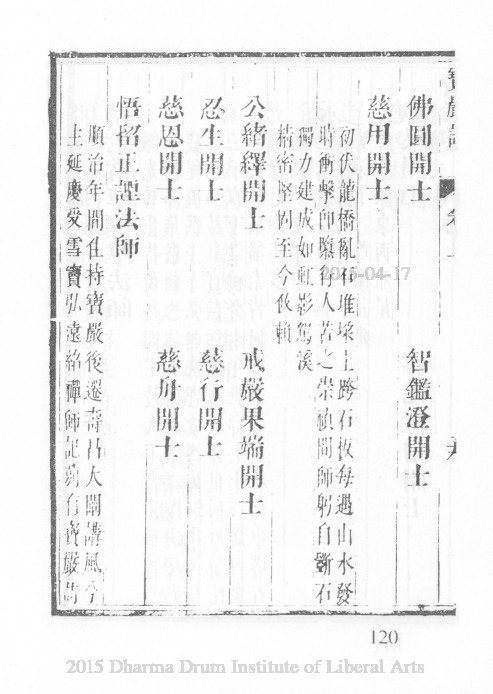 佛圓開士　智鑑澄開士
慈用開士
初伏龍橋亂石堆垛上跨石板每遇山水發
時衝擊卽隳行人苦之崇禎間師躬自斲石
獨力建成如虹影駕溪
精密堅固至今攸賴
公緒繹開士　戒嚴果端開士
忍生開士　慈行開士
慈恩開士　慈舟開士
悟留正誌法師
順治年間住持寶嚴後遷壽昌大闡講風今
主延慶受雪竇弘遠絡禪師記莂有寶嚴詩
2015-04-17
120
2015 Dharma Drum Institute of Liberal Arts